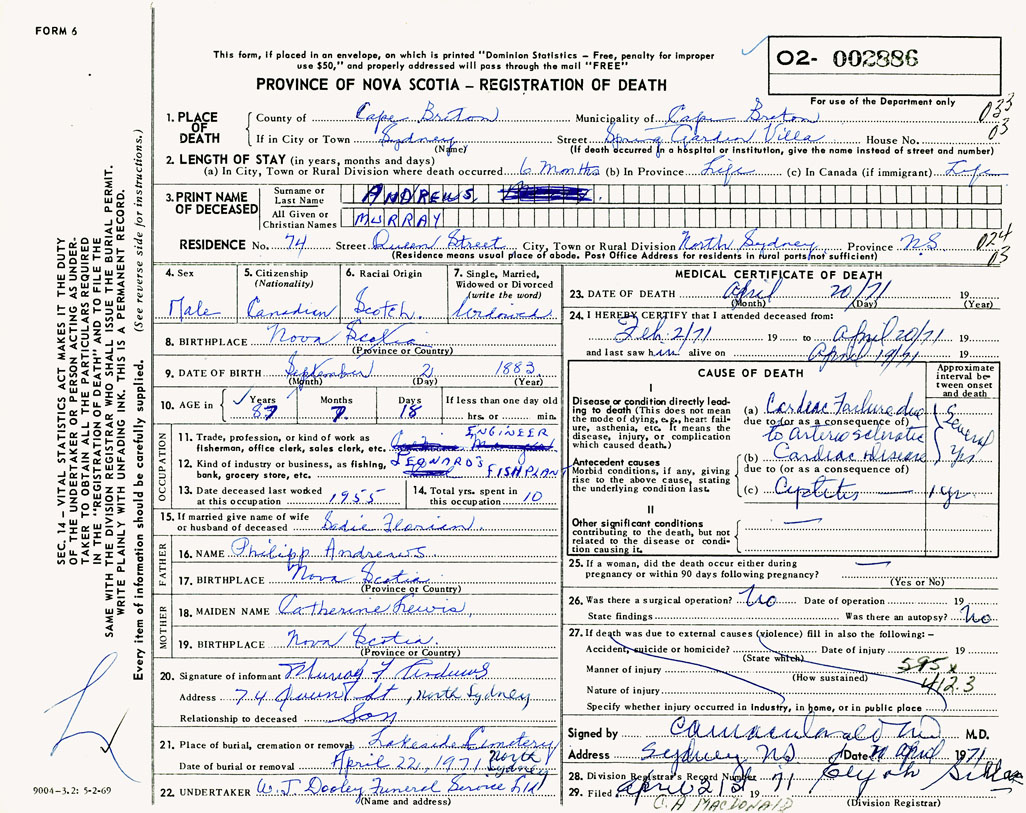 FORM 6
This form, if placed in an envelope, on which is printed "Dominion Statistics – Free, penalty for improper
use $50," and properly addressed will pass through the mail "FREE"
PROVINCE OF NOVA SCOTIA – REGISTRATION OF DEATH
02- 002886
For use of the Department only
SEC. 14 – VITAL STATISTICS ACT MAKES IT THE DUTY
OF THE UNDERTAKER OR PERSON ACTING AS UNDER-
TAKER TO OBTAIN ALL THE PARTICULARS REQUIRED
IN THE "REGISTRATION OF DEATH" AND TO FILE THE
SAME WITH THE DIVISION REGISTRAR WHO SHALL ISSUE THE BURIAL PERMIT.
WRITE PLAINLY WITH UNFADING INK. THIS IS A PERMANENT RECORD.
Every item of information should be carefully supplied. (See reverse side for instructions.)
1. PLACE OF DEATH County of Cape Breton Municipality of Cape Breton 033
If in City or Town Sydney Street Spring Garden Villa House No. 03
(Name) (If death occurred in a hospital or institution, give the name instead of street and number)
2. LENGTH OF STAY (in years, months and days)
(a) In City, Town or Rural Division where death occurred 6 Months (b) In Province Life (c) In Canada (if immigrant) Life
3. PRINT NAME OF DECEASED Surname or Last Name ANDREWS
All Given or Christian Names MURRAY
RESIDENCE No. 74 Street Queen Street City, Town or Rural Division North Sydney Province NS 024
(Residence means usual place of abode. Post Office Address for residents in rural parts not sufficient) 03
4. Sex Male
5. Citizenship (Nationality) Canadian
6. Racial Origin Scotch
7. Single, Married, Widowed or Divorced (write the word) Widowed
8. BIRTHPLACE Nova Scotia
(Province or Country)
9. DATE OF BIRTH September 2 1883
(Month) (Day) (Year)
10. AGE in Years 87 Months 7 Days 18 If less than one day old hrs. or min.
OCCUPATION
11. Trade, profession, or kind of work as fisherman, office clerk, sales clerk, etc. ENGINEER
12. Kind of industry or business, as fishing, bank, grocery store, etc. LEONARD'S FISH PLANT
13. Date deceased last worked at this occupation 1955
14. Total yrs. spent in this occupation 10
15. If married give name of wife or husband of deceased Sadie Florian
FATHER
16. NAME Philipp Andrews
17. BIRTHPLACE Nova Scotia
(Province or Country)
MOTHER
18. MAIDEN NAME Catherine Lewis
19. BIRTHPLACE Nova Scotia
(Province or Country)
20. Signature of informant Murray F Andrews
Address 74 Queen St, North Sydney
Relationship to deceased Son
21. Place of burial, cremation or removal Lakeside Cemetery
North Sydney
Date of burial or removal April 22, 1971
22. UNDERTAKER W. J. Dooley Funeral Service Ltd
(Name and address)
9004–3.2: 5-2-69
MEDICAL CERTIFICATE OF DEATH
23. DATE OF DEATH April 20/71 19
(Month) (Day) (Year)
24. I HEREBY CERTIFY that I attended deceased from:
Feb. 2/71 19 to April 20/71
and last saw him alive on April 19/71 19
CAUSE OF DEATH
Approximate interval between onset and death
I
Disease or condition directly leading to death (This does not mean the mode of dying, e.g., heart failure, asthenia, etc. It means the disease, injury, or complication which caused death.)
(a) Cardiac Failure due
due to (or as a consequence of)
to arteriosclerotic
Antecedent causes
Morbid conditions, if any, giving rise to the above cause, stating the underlying condition last.
(b) Cardiac disease
due to (or as a consequence of)
Several Yrs
(c) Cystitis — 1 yr.
II
Other significant conditions
contributing to the death, but not related to the disease or condition causing it.
25. If a woman, did the death occur either during pregnancy or within 90 days following pregnancy? —
(Yes or No)
26. Was there a surgical operation? No Date of operation 19
State findings Was there an autopsy? No
27. If death was due to external causes (violence) fill in also the following:–
Accident, suicide or homicide? Date of injury 19
(State which)
Manner of injury 595 x
(How sustained) 412.3
Nature of injury
Specify whether injury occurred in industry, in home, or in public place
Signed by M.D.
Address Sydney NS Date 20 April 1971
28. Division Registrar's Record Number
29. Filed April 21st 19 71
(Division Registrar)
C. A MACDONALD